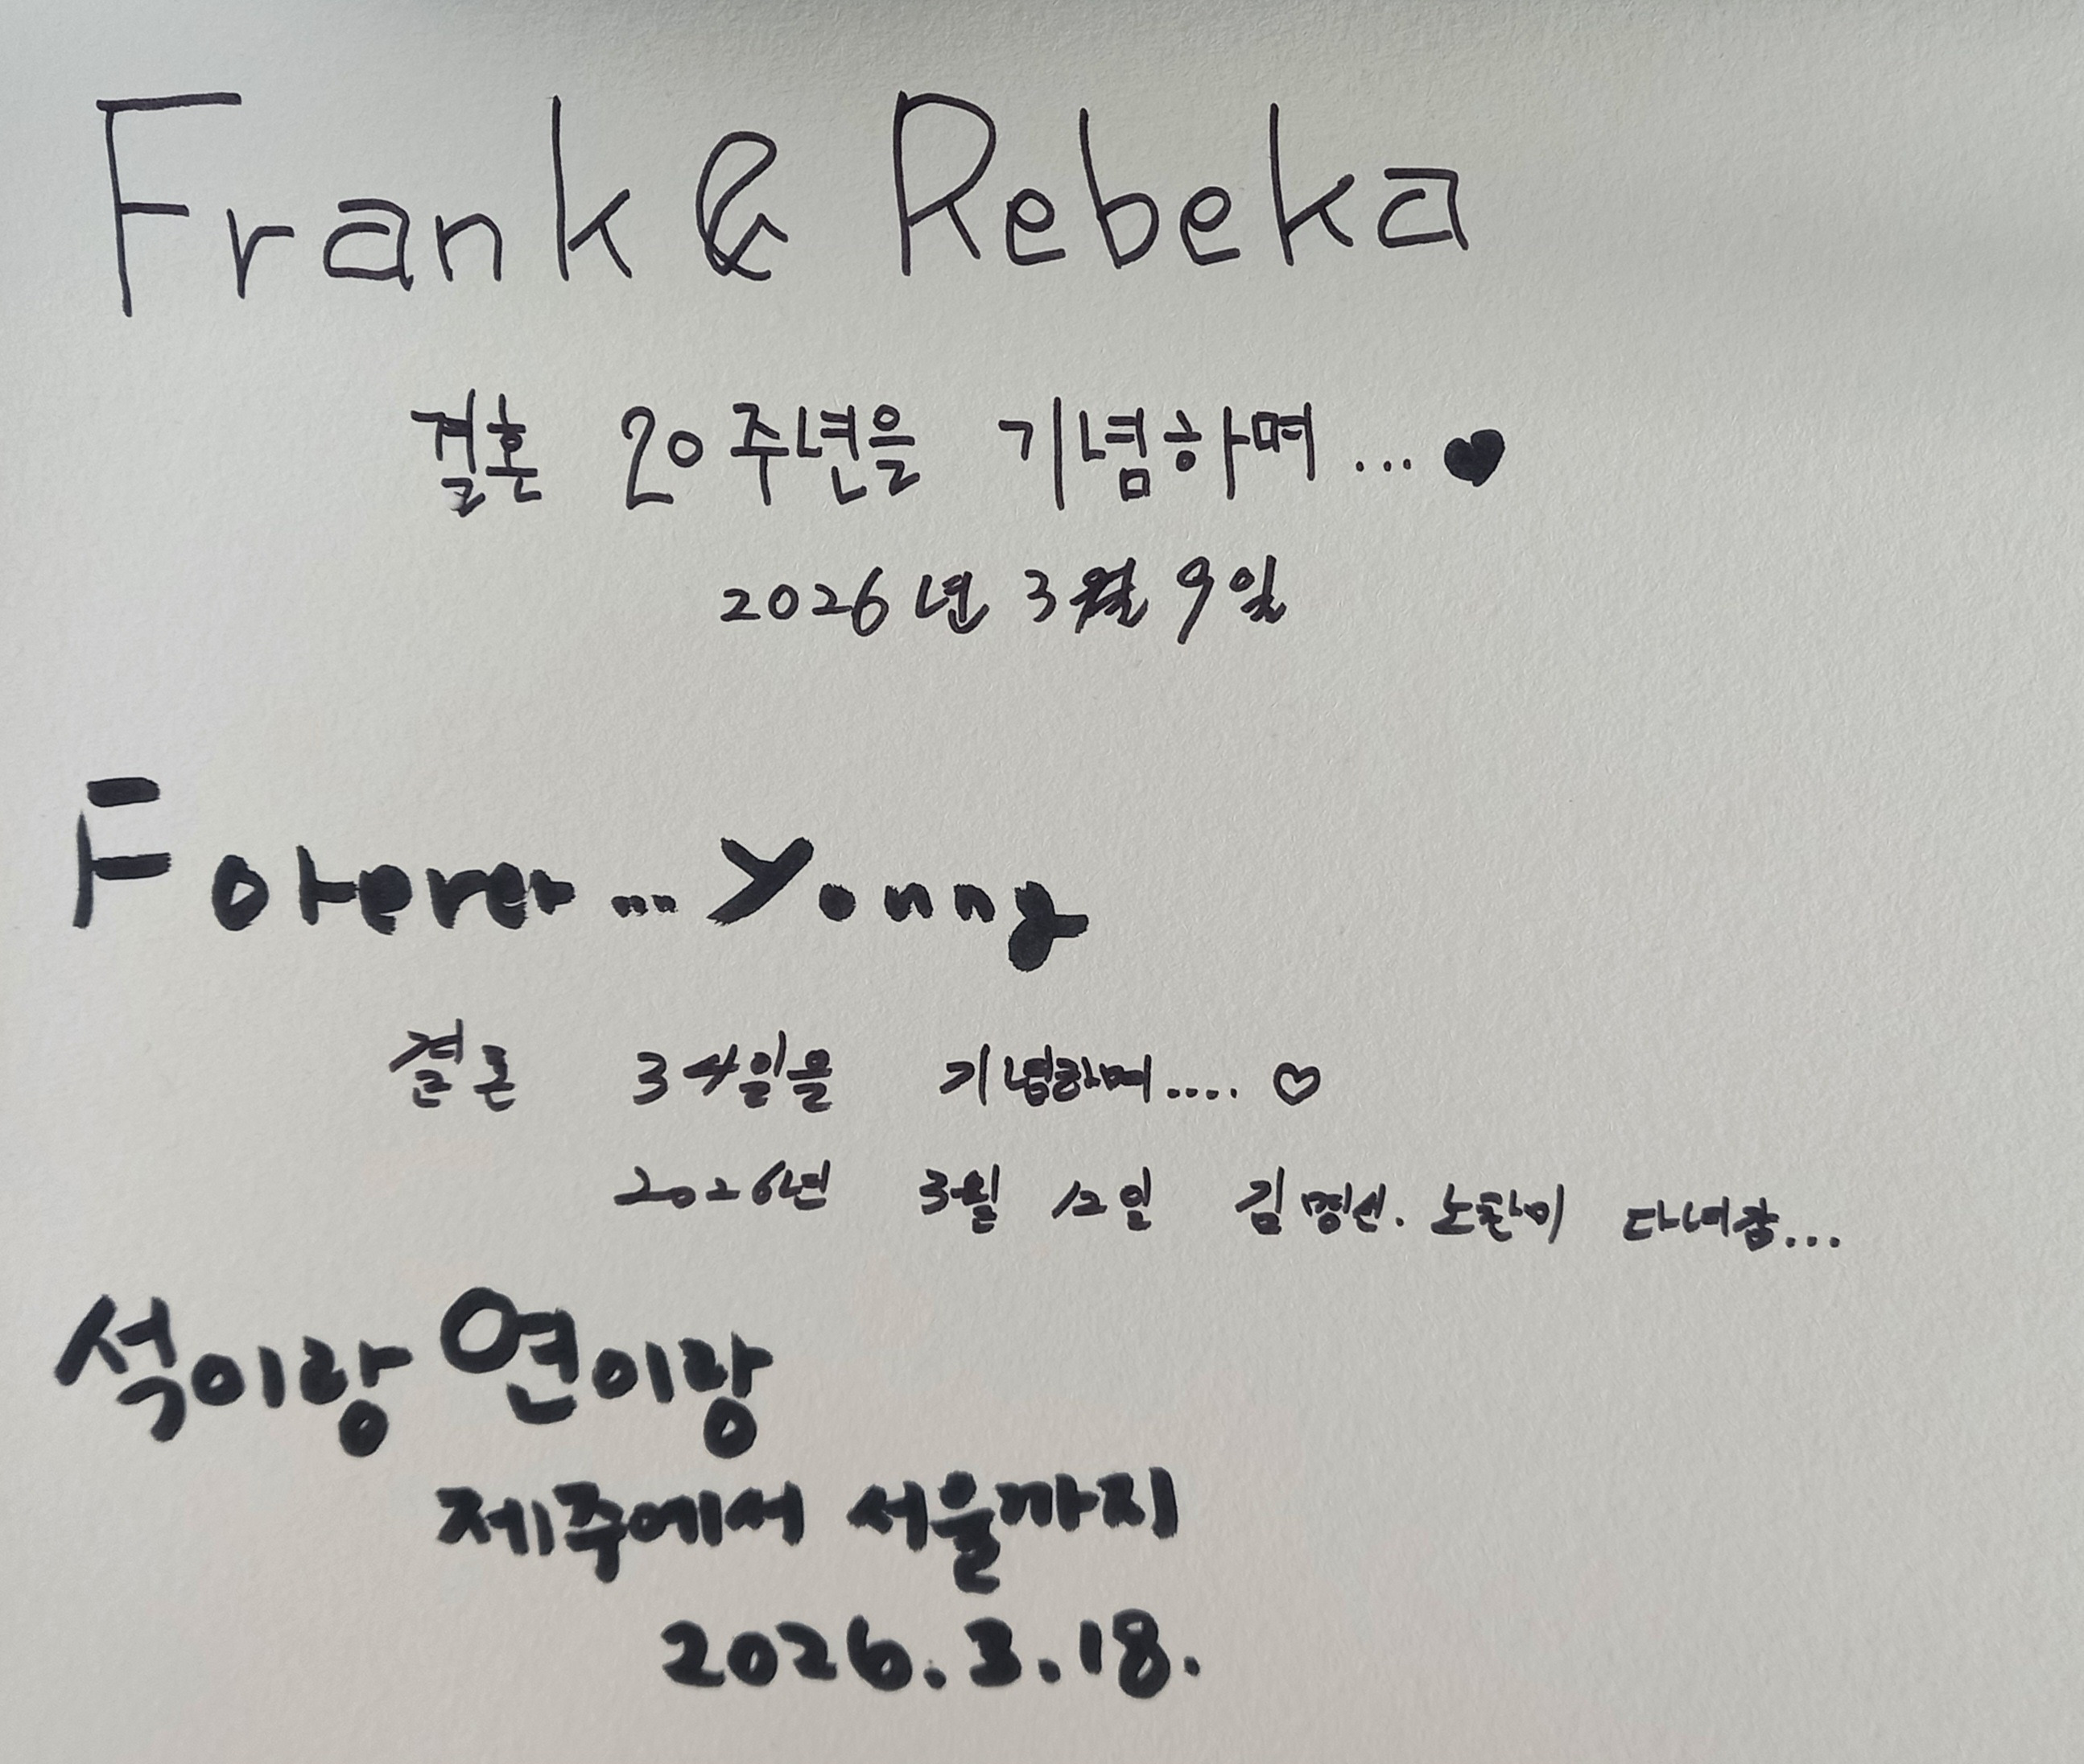 Frank & Rebeka
결혼 20주년을 기념하며... ♥
2026년 3월 9일
Forever... Young
결혼 34일을 기념하며.... ♡
2026년 3월 12일 김명선. 다녀감...
석이랑 연이랑
제주에서 서울까지
2026.3.18.